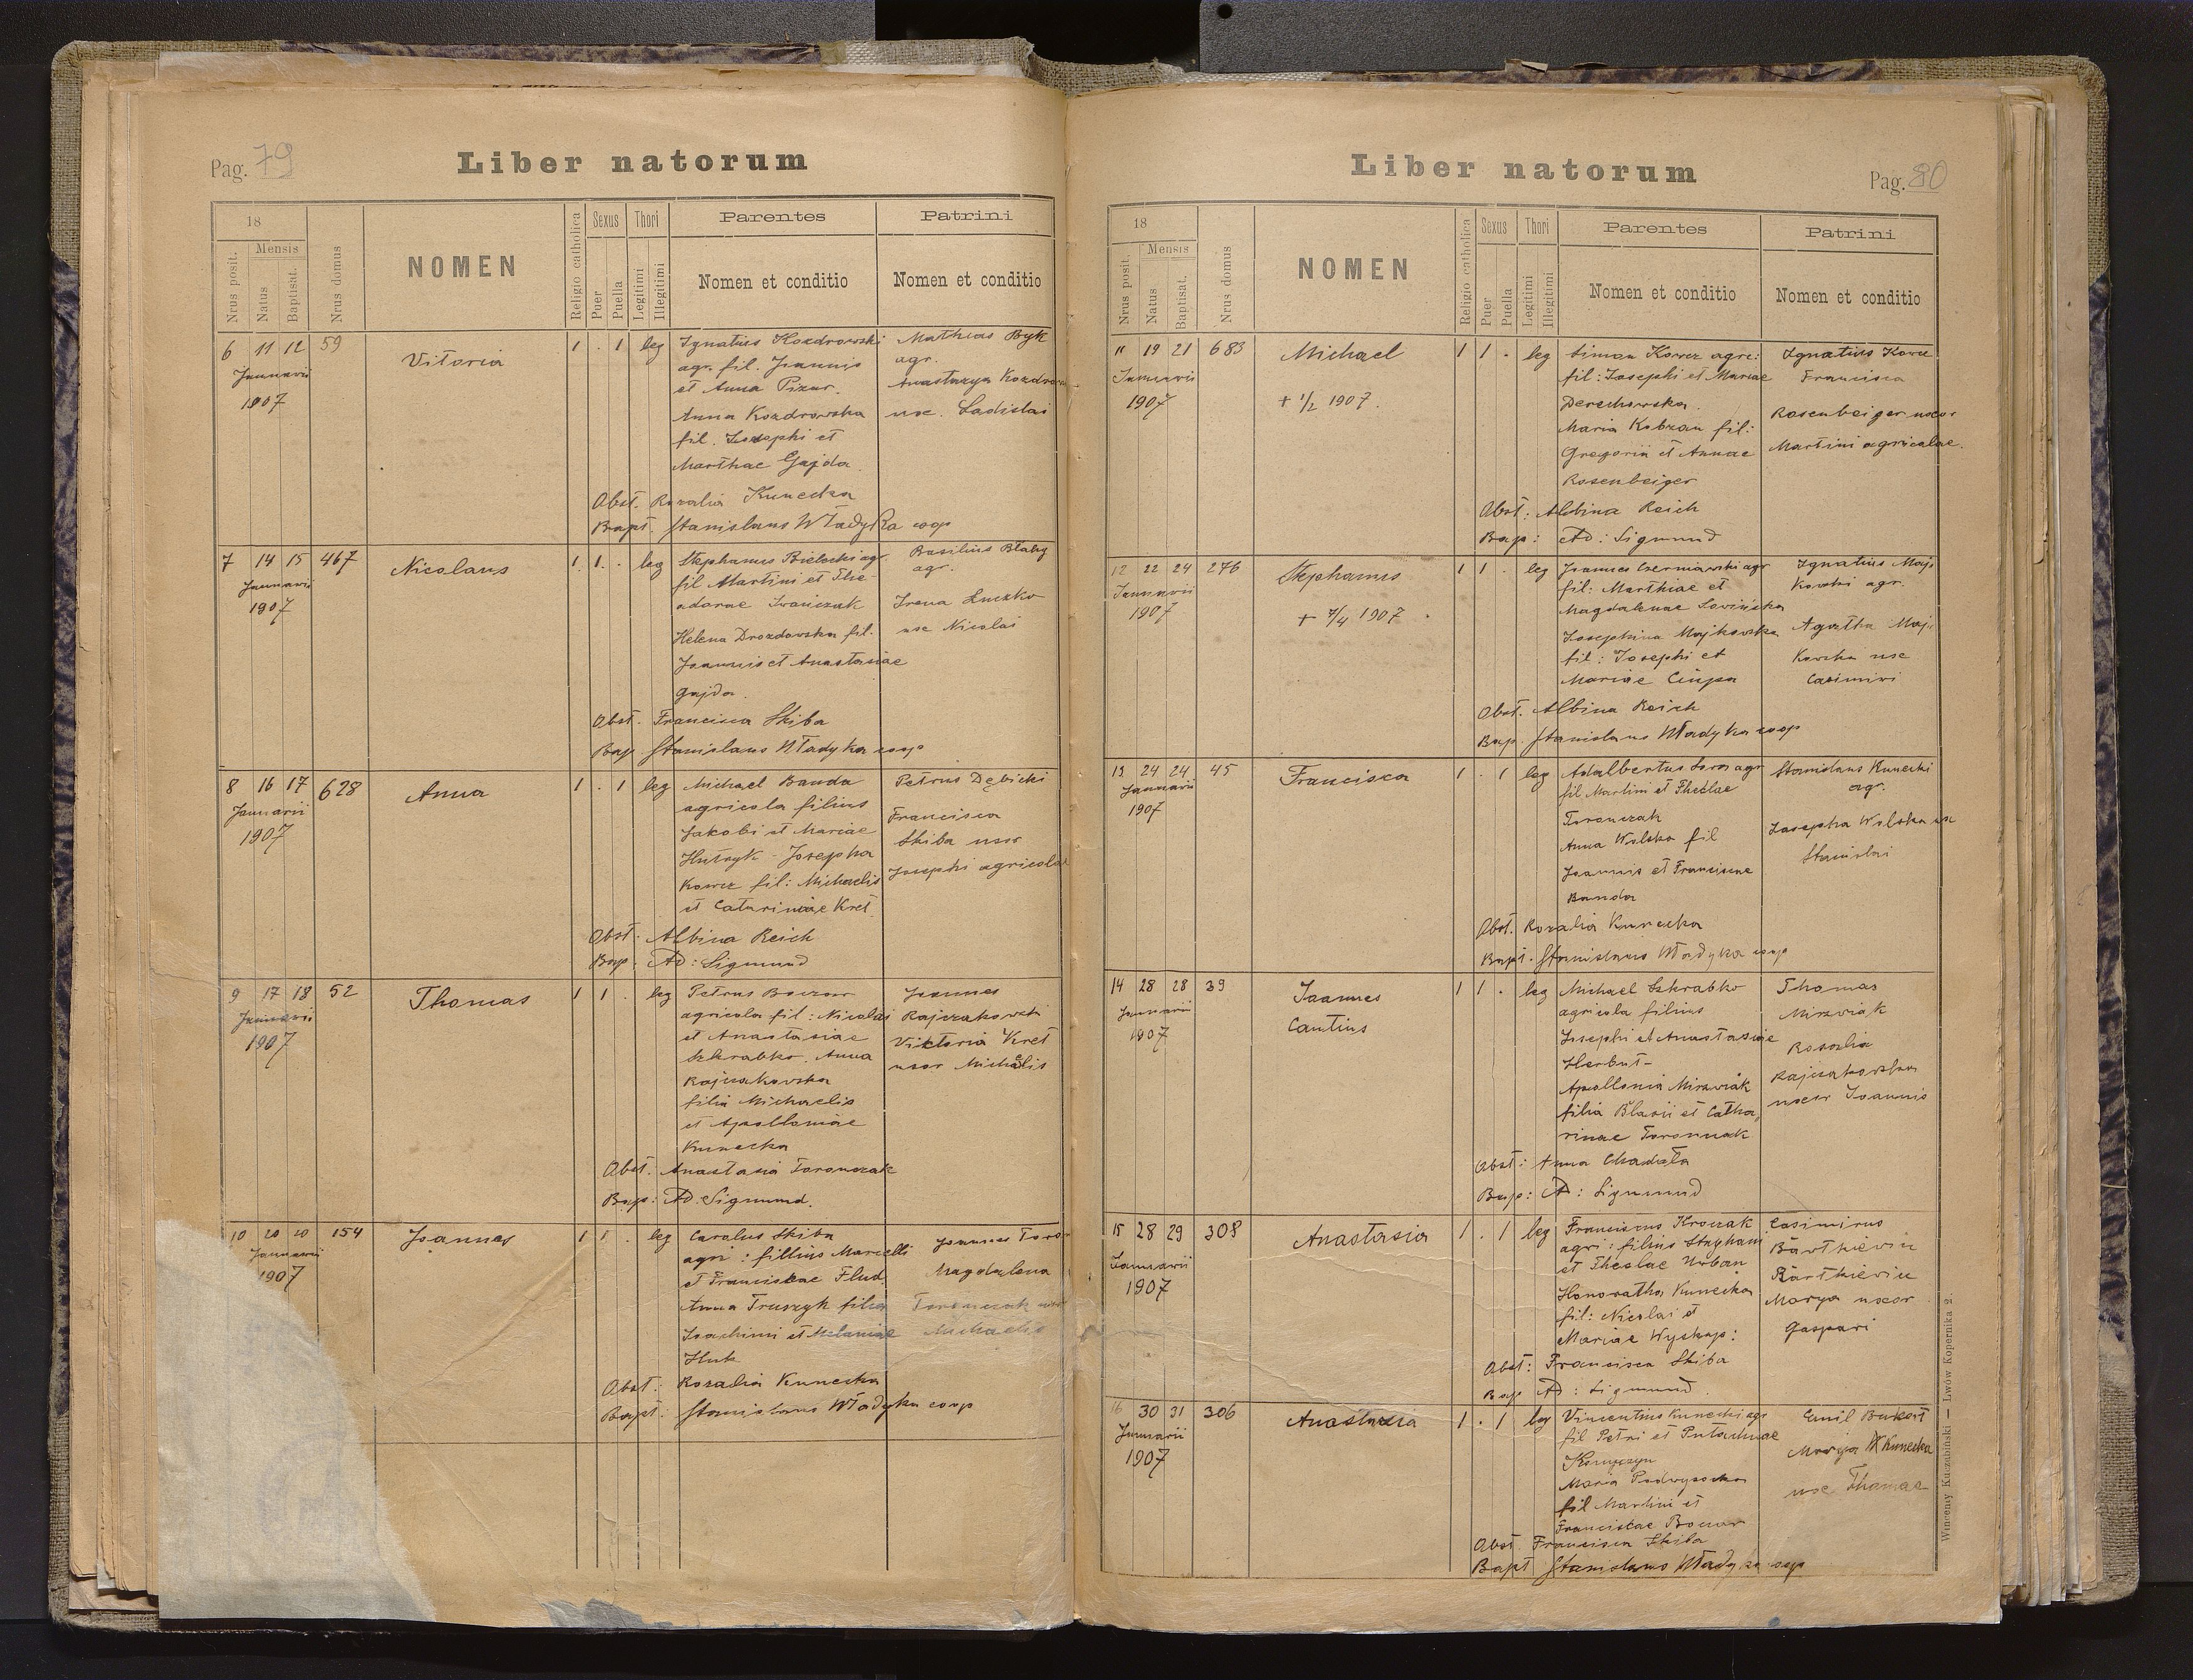 Pag. 79
Liber natorum
18
Mensis
Nrus posit.
Natus
Baptisat.
Nrus domus
NOMEN
Religio catholica
Sexus
Puer
Puella
Thori
Legitimi
Illegitimi
Parentes
Nomen et conditio
Patrini
Nomen et conditio
6 11 12 59
Januarii
1907
Vitoria
1 . 1 leg
Ignatius Kozdrowski
agr. fil. Joannis
et Anna Pizar.
Anna Kozdrowska
fil. Josephi et
Marthae Gajda.
Mathias Byk
agr.
Anastazya
uxe. Ladislai
Obst. Rozalia Kunecka
Bapt. Stanislaus Władyka coop
7 14 15 467
Januarii
1907
Nicolaus
1 1 . leg
Stephanus Bielecki agr.
fil Martini et The-
odorae Iwańczak
Helena Drozdowska fil.
Joannis et Anastasiae
Gajda.
Basilius Biały
agr.
Irena Łuczko
uxe Nicolai
Obst. Francisca Skiba
Bap. Stanislaus Władyka coop
8 16 17 628
Januarii
1907
Anna
1 . 1 leg
Michael Banda
agricola filius
Jakobi et Mariae
Josepha
Kowcz fil: Michaelis
et Catarinae Kret
Petrus Dębicki
Francisca
Skiba uxor
Josephi agricolae
Obst: Albina Reich
Bap: Ad: Sigmund
9 17 18 52
Januarii
1907
Thomas
1 1 . leg
Petrus Boczar
agricola fil: Nicolai
et Anastasiae
Szkrabko. Anna
Rajczakowska
filia Michaelis
et Apolloniae
Kunecka
Joannes
Rajczakowski
Viktoria Kret
uxor Michaelis
Obst: Anastasia Toronczak
Bap: Ad: Sigmund.
10 20 20 154
Januarii
1907
Joannes
1 1 . leg
Carolus Skiba
agri: fillius Marcelli
et Franciscae Flud.
Anna Truszyk filia
Joachimi et Melaniae
Huk
Joannes
Magdalena
Toronczak
Michaelis
Obst: Rozalia Kunecka
Bapt: Stanislaus Władyka coop
Liber natorum
Pag. 80
18
Mensis
Nrus posit.
Natus
Baptisat.
Nrus domus
NOMEN
Religio catholica
Sexus
Puer
Puella
Thori
Legitimi
Illegitimi
Parentes
Nomen et conditio
Patrini
Nomen et conditio
11 19 21 683
Januarii
1907
Michael
+ 1/2 1907.
1 1 . leg
Simon Korcz agri:
fil: Josephi et Mariae
Derechowska.
Maria Kobzan fil:
Gregorii et Annae
Rosenbeiger
Ignatius
Francisca
Rosenbeiger uxor
Martini agricolae.
Obst: Albina Reich
Bap: Ad: Sigmund
12 22 24 276
Januarii
1907
Stephanus
+ 7/4 1907
1 1 . leg
Joannes Czerniawski agr
fil: Mathiae et
Magdalenae
Josephina Majkowska
fil: Josephi et
Mariae Ciupa
Ignatius Maj-
kowski agr.
Agatha Maj-
kowska uxe
Casimiri
Obst. Albina Reich
Bap. Stanislaus Władyka coop
13 24 24 45
Januarii
1907
Francisca
1 . 1 leg
Adalbertus agr
fil Martini et Theclae
Toronczak
Anna Wolska fil
Joannis et Franciscae
Banda
Stanislaus Kunecki
agr.
Josepha Wolska ux
Stanislai
Obst. Rozalia Kunecka
Bapt. Stanislaus Władyka coop
14 28 28 39
Januarii
1907
Joannes
Cantius
1 1 . leg
Michael Szkrabko
agricola filius
Josephi et Anastasiae
Herbut-
Apollonia Mizwiak
filia Blasii et Catha,
rinae Toronczak
Thomas
Mizwiak
Rosalia
Rajczakowska
uxor Joannis
Obst: Anna Chadzta
Bap: Ad: Sigmund
15 28 29 308
Januarii
1907
Anastasia
1 . 1 leg
Franciscus Kroczak
agri: filius Stephani
et Theclae Urban
Honoratha Kunecka
fil: Nicolai et
Mariae Wyskop:
Casimirus
Bartkiewicz
Bartkiewicz
Marya uxor
Gaspari
Obst: Francisca Skiba
Bap Ad: Sigmund.
16 30 31 306
Januarii
1907
Anastasia
1 . 1 leg
Vincentius Kunecki agr
fil Petri et
Maria Podwysocka
fil Martini et
Franciscae Boczar
Emil
Marya Kunecka
uxe Thomae
Obst. Francisca Skiba
Bapt Stanislaus Władyka coop
Wincenty Kuczabiński — Lwów Kopernika 2.